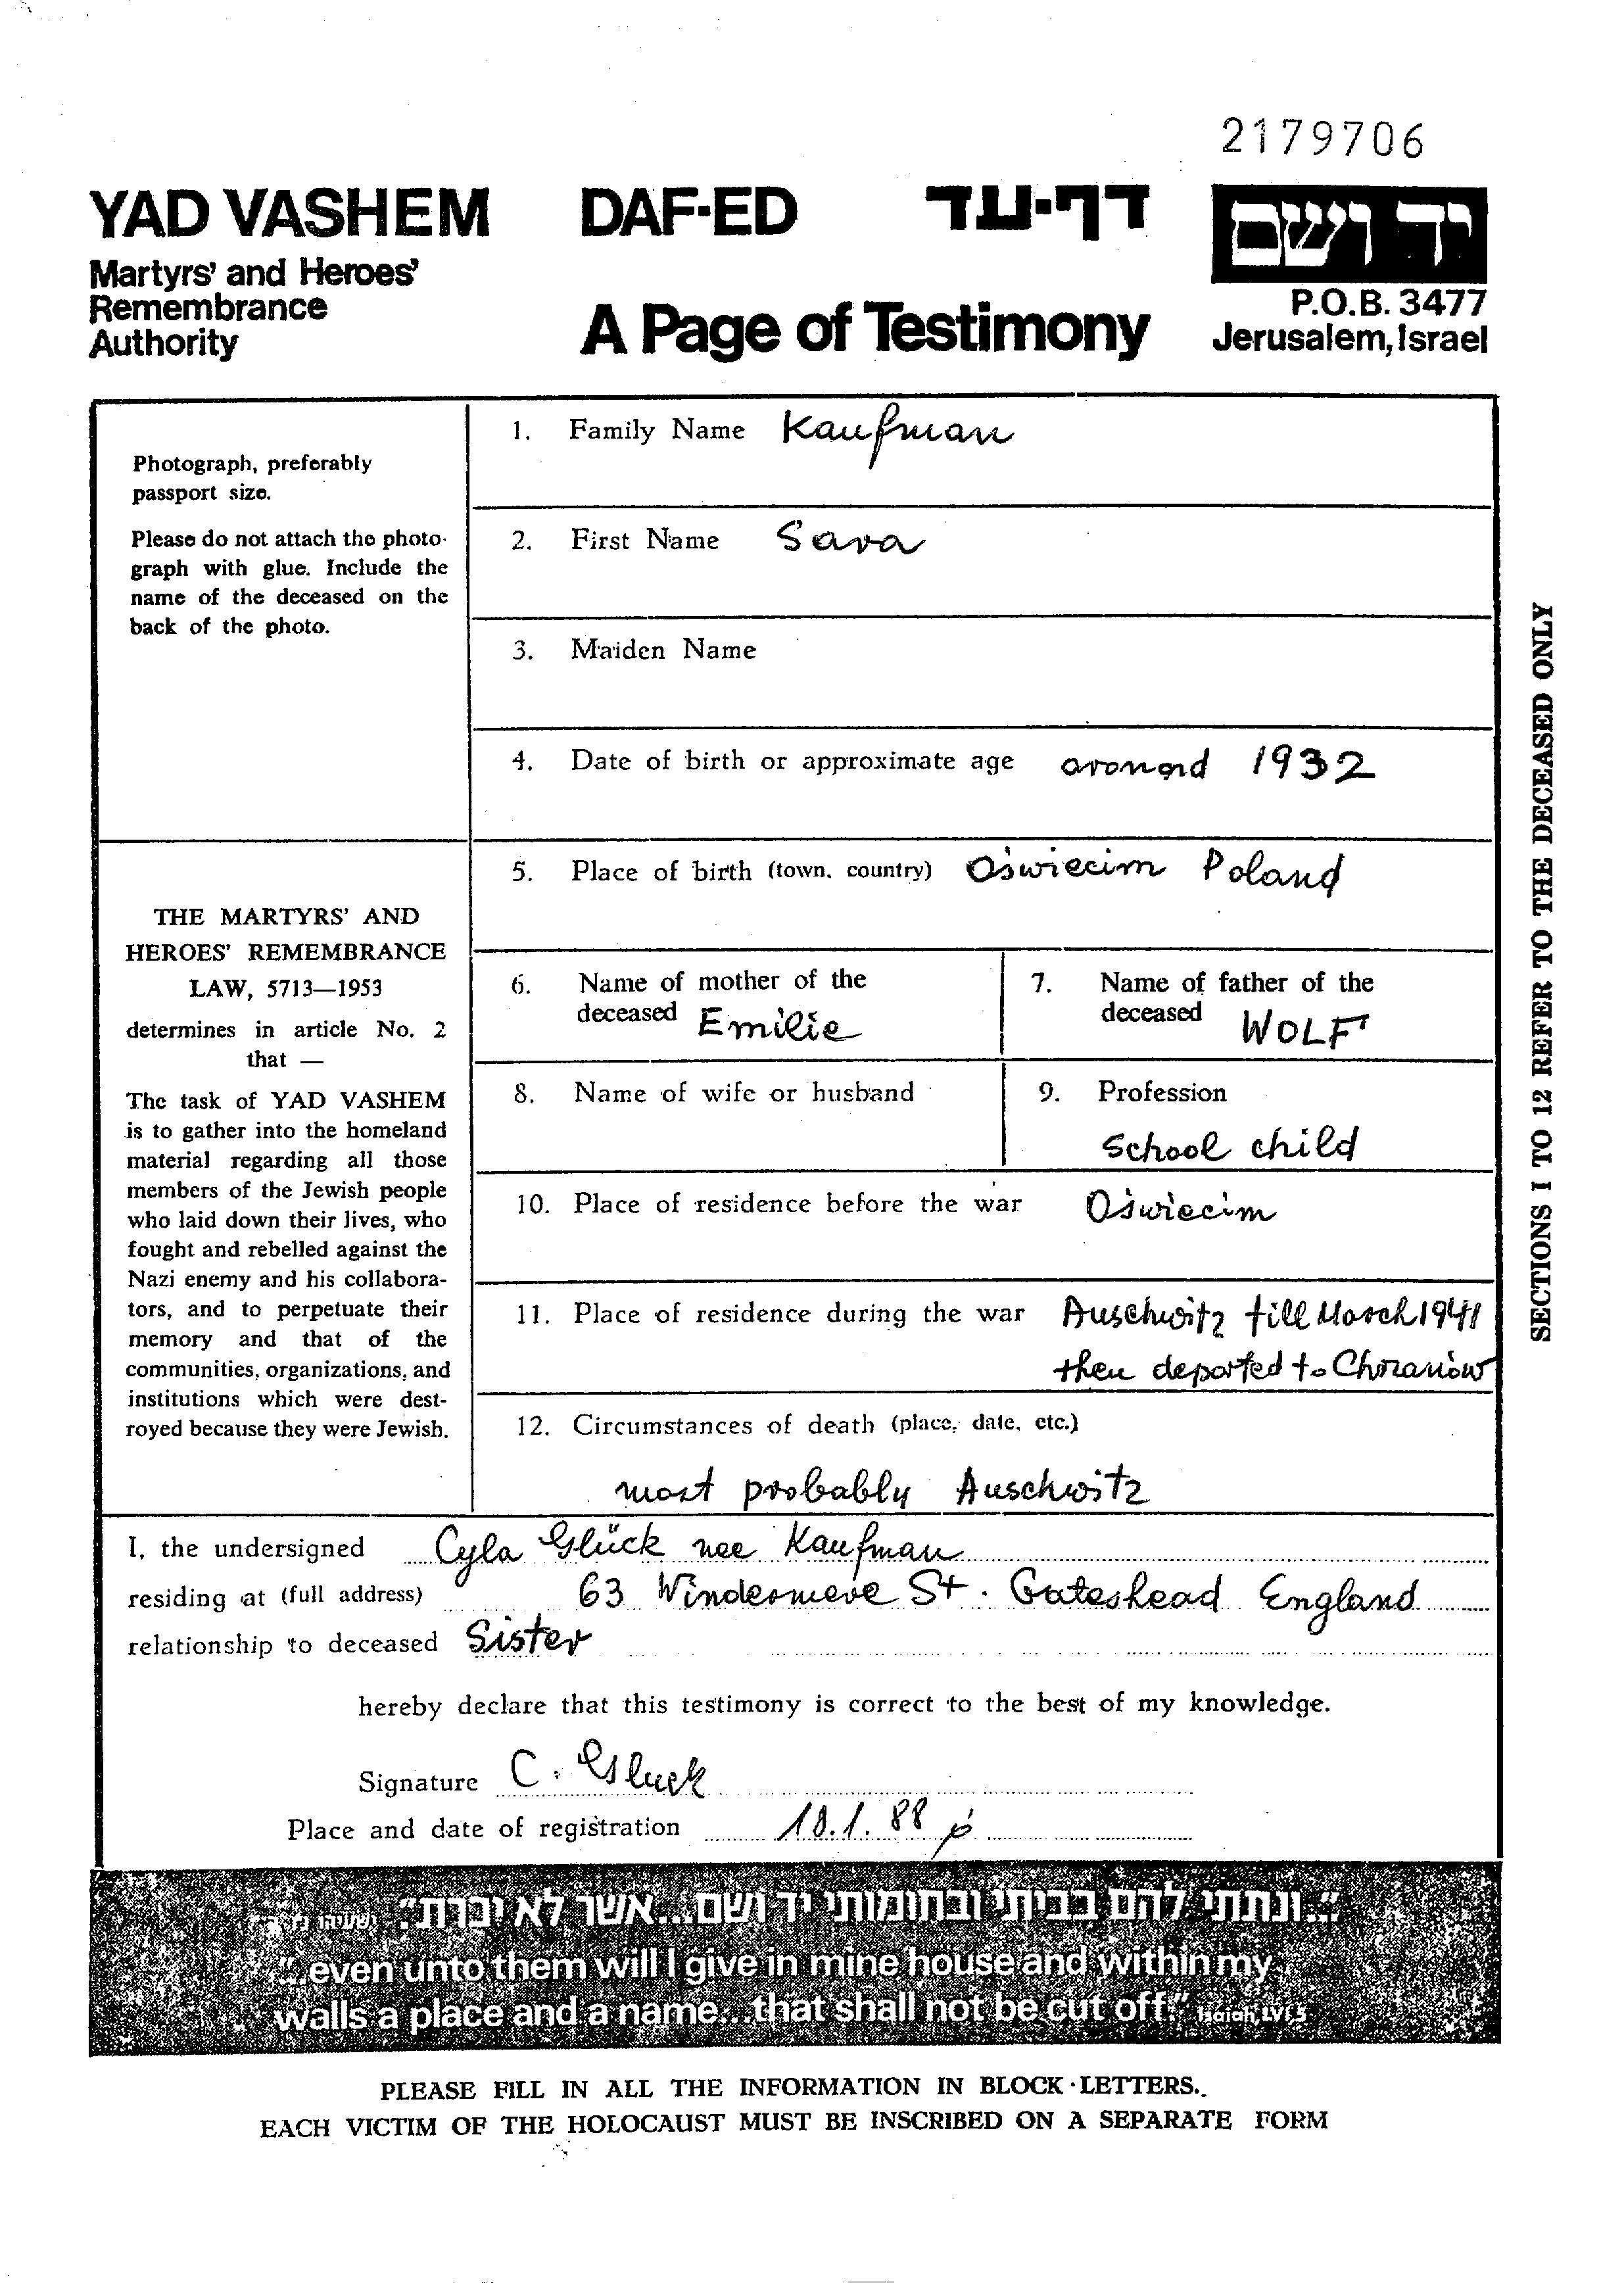 2179706
YAD VASHEM DAF-ED דף-עד יד ושם
Martyrs' and Heroes'
Remembrance
Authority
A Page of Testimony
P.O.B. 3477
Jerusalem, Israel
Photograph, preferably
passport size.
Please do not attach the photo-
graph with glue. Include the
name of the deceased on the
back of the photo.
THE MARTYRS' AND
HEROES' REMEMBRANCE
LAW, 5713—1953
determines in article No. 2
that —
The task of YAD VASHEM
is to gather into the homeland
material regarding all those
members of the Jewish people
who laid down their lives, who
fought and rebelled against the
Nazi enemy and his collabora-
tors, and to perpetuate their
memory and that of the
communities, organizations, and
institutions which were dest-
royed because they were Jewish.
1. Family Name Kaufman
2. First Name Sara
3. Maiden Name
4. Date of birth or approximate age around 1932
5. Place of birth (town, country) Oświecim Poland
6. Name of mother of the
deceased Emilie
7. Name of father of the
deceased WOLF
8. Name of wife or husband
9. Profession
School child
10. Place of residence before the war Oświecim
11. Place of residence during the war Auschwitz till March 1941
then deported to Chrzanów
12. Circumstances of death (place, date, etc.)
most probably Auschwitz
SECTIONS 1 TO 12 REFER TO THE DECEASED ONLY
I, the undersigned Cyla Glück nee Kaufman
residing at (full address) 63 Windermere St. Gateshead England
relationship to deceased Sister
hereby declare that this testimony is correct to the best of my knowledge.
Signature C. Gluck
Place and date of registration 18.1.88
"...ונתתי להם בביתי ובחומותי יד ושם...אשר לא יכרת". ישעיהו נו, ה
"...even unto them will I give in mine house and within my
walls a place and a name...that shall not be cut off." Isaiah, LVI.5
PLEASE FILL IN ALL THE INFORMATION IN BLOCK LETTERS.
EACH VICTIM OF THE HOLOCAUST MUST BE INSCRIBED ON A SEPARATE FORM